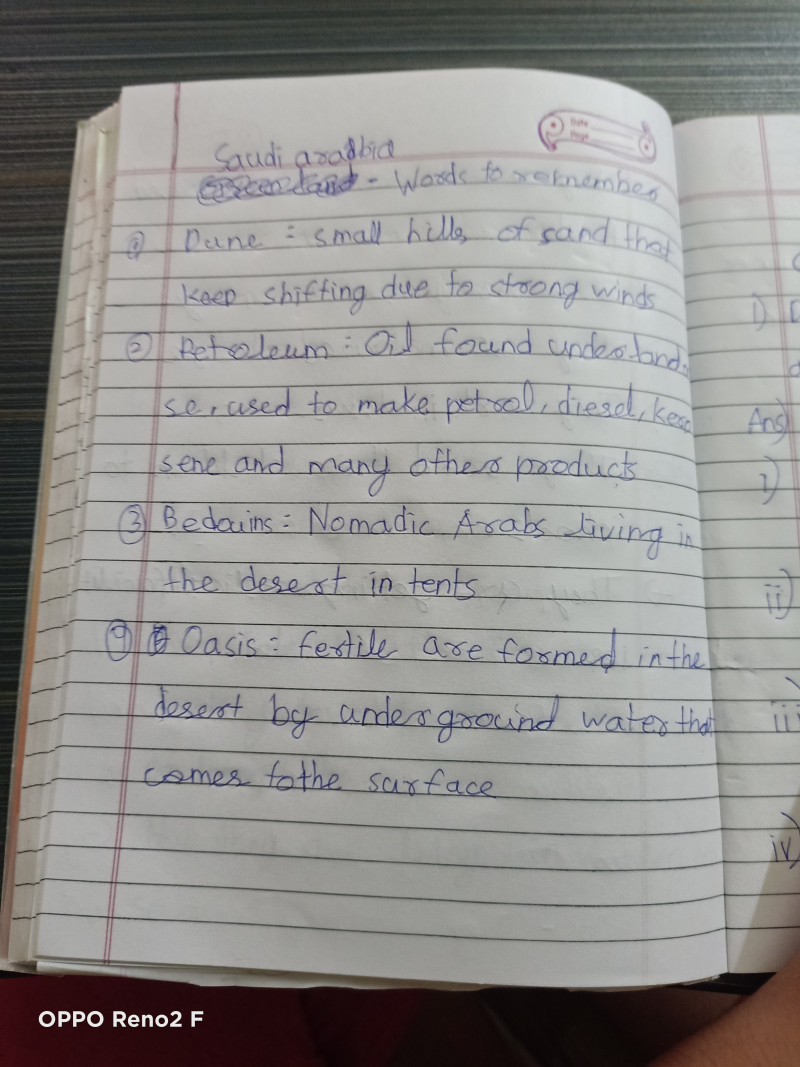 Date
Page
Saudi arabia
- Words to remember
① Dune : small hills of sand that
keep shifting due to strong winds
② Petroleum : Oil found understand
se, used to make petrol, diesel, kero
sene and many others products
③ Bedouins : Nomadic Arabs living in
the desert in tents
④ Oasis : fertile are formed in the
desert by underground water that
comes to the surface
i)
Ans)
i)
ii)
iii
iv)
OPPO Reno2 F